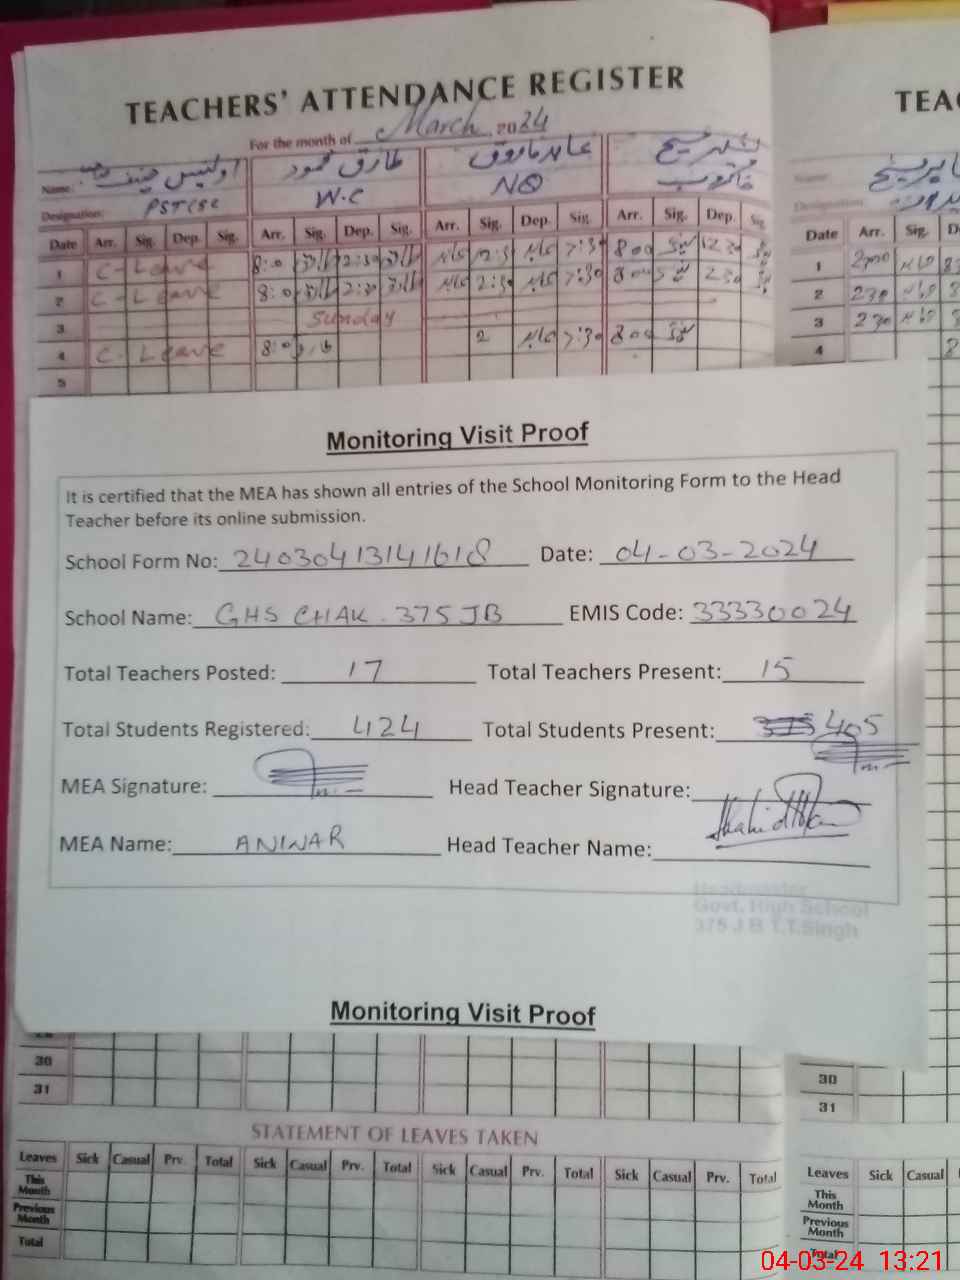 TEACHERS' ATTENDANCE REGISTER
For the month of March, 2024
Name: اویس طارق محمود عابد فاروق
Designation: PST(SC W.C NQ
Date Arr. Sig. Dep. Sig. Arr. Sig. Dep. Sig. Arr. Sig. Dep. Sig. Arr. Sig. Dep. Sig.
1 C-Leave 8:0 2:30 عابد 2:3 عابد 7:30 800
2 C-Leave 8:0 2:30 عابد 2:30 عابد 7:30 800 230
3 Sunday
4 C-Leave 8:0 2 عابد 7:30 800
5
TEAC
Name:
Designation:
Date Arr. Sig. D
1
2 230
3 230
4
Monitoring Visit Proof
It is certified that the MEA has shown all entries of the School Monitoring Form to the Head
Teacher before its online submission.
School Form No: 24030413141618 Date: 04-03-2024
School Name: GHS CHAK. 375 JB EMIS Code: 33330024
Total Teachers Posted: 17 Total Teachers Present: 15
Total Students Registered: 424 Total Students Present: 405
MEA Signature: Head Teacher Signature:
MEA Name: ANWAR Head Teacher Name:
Headmaster
Govt. High School
375 J.B T.T.Singh
Monitoring Visit Proof
30
31
30
31
STATEMENT OF LEAVES TAKEN
Leaves Sick Casual Prv. Total Sick Casual Prv. Total Sick Casual Prv. Total Sick Casual Prv. Total
This Month
Previous Month
Total
Leaves Sick Casual
This Month
Previous Month
Total
04-03-24 13:21